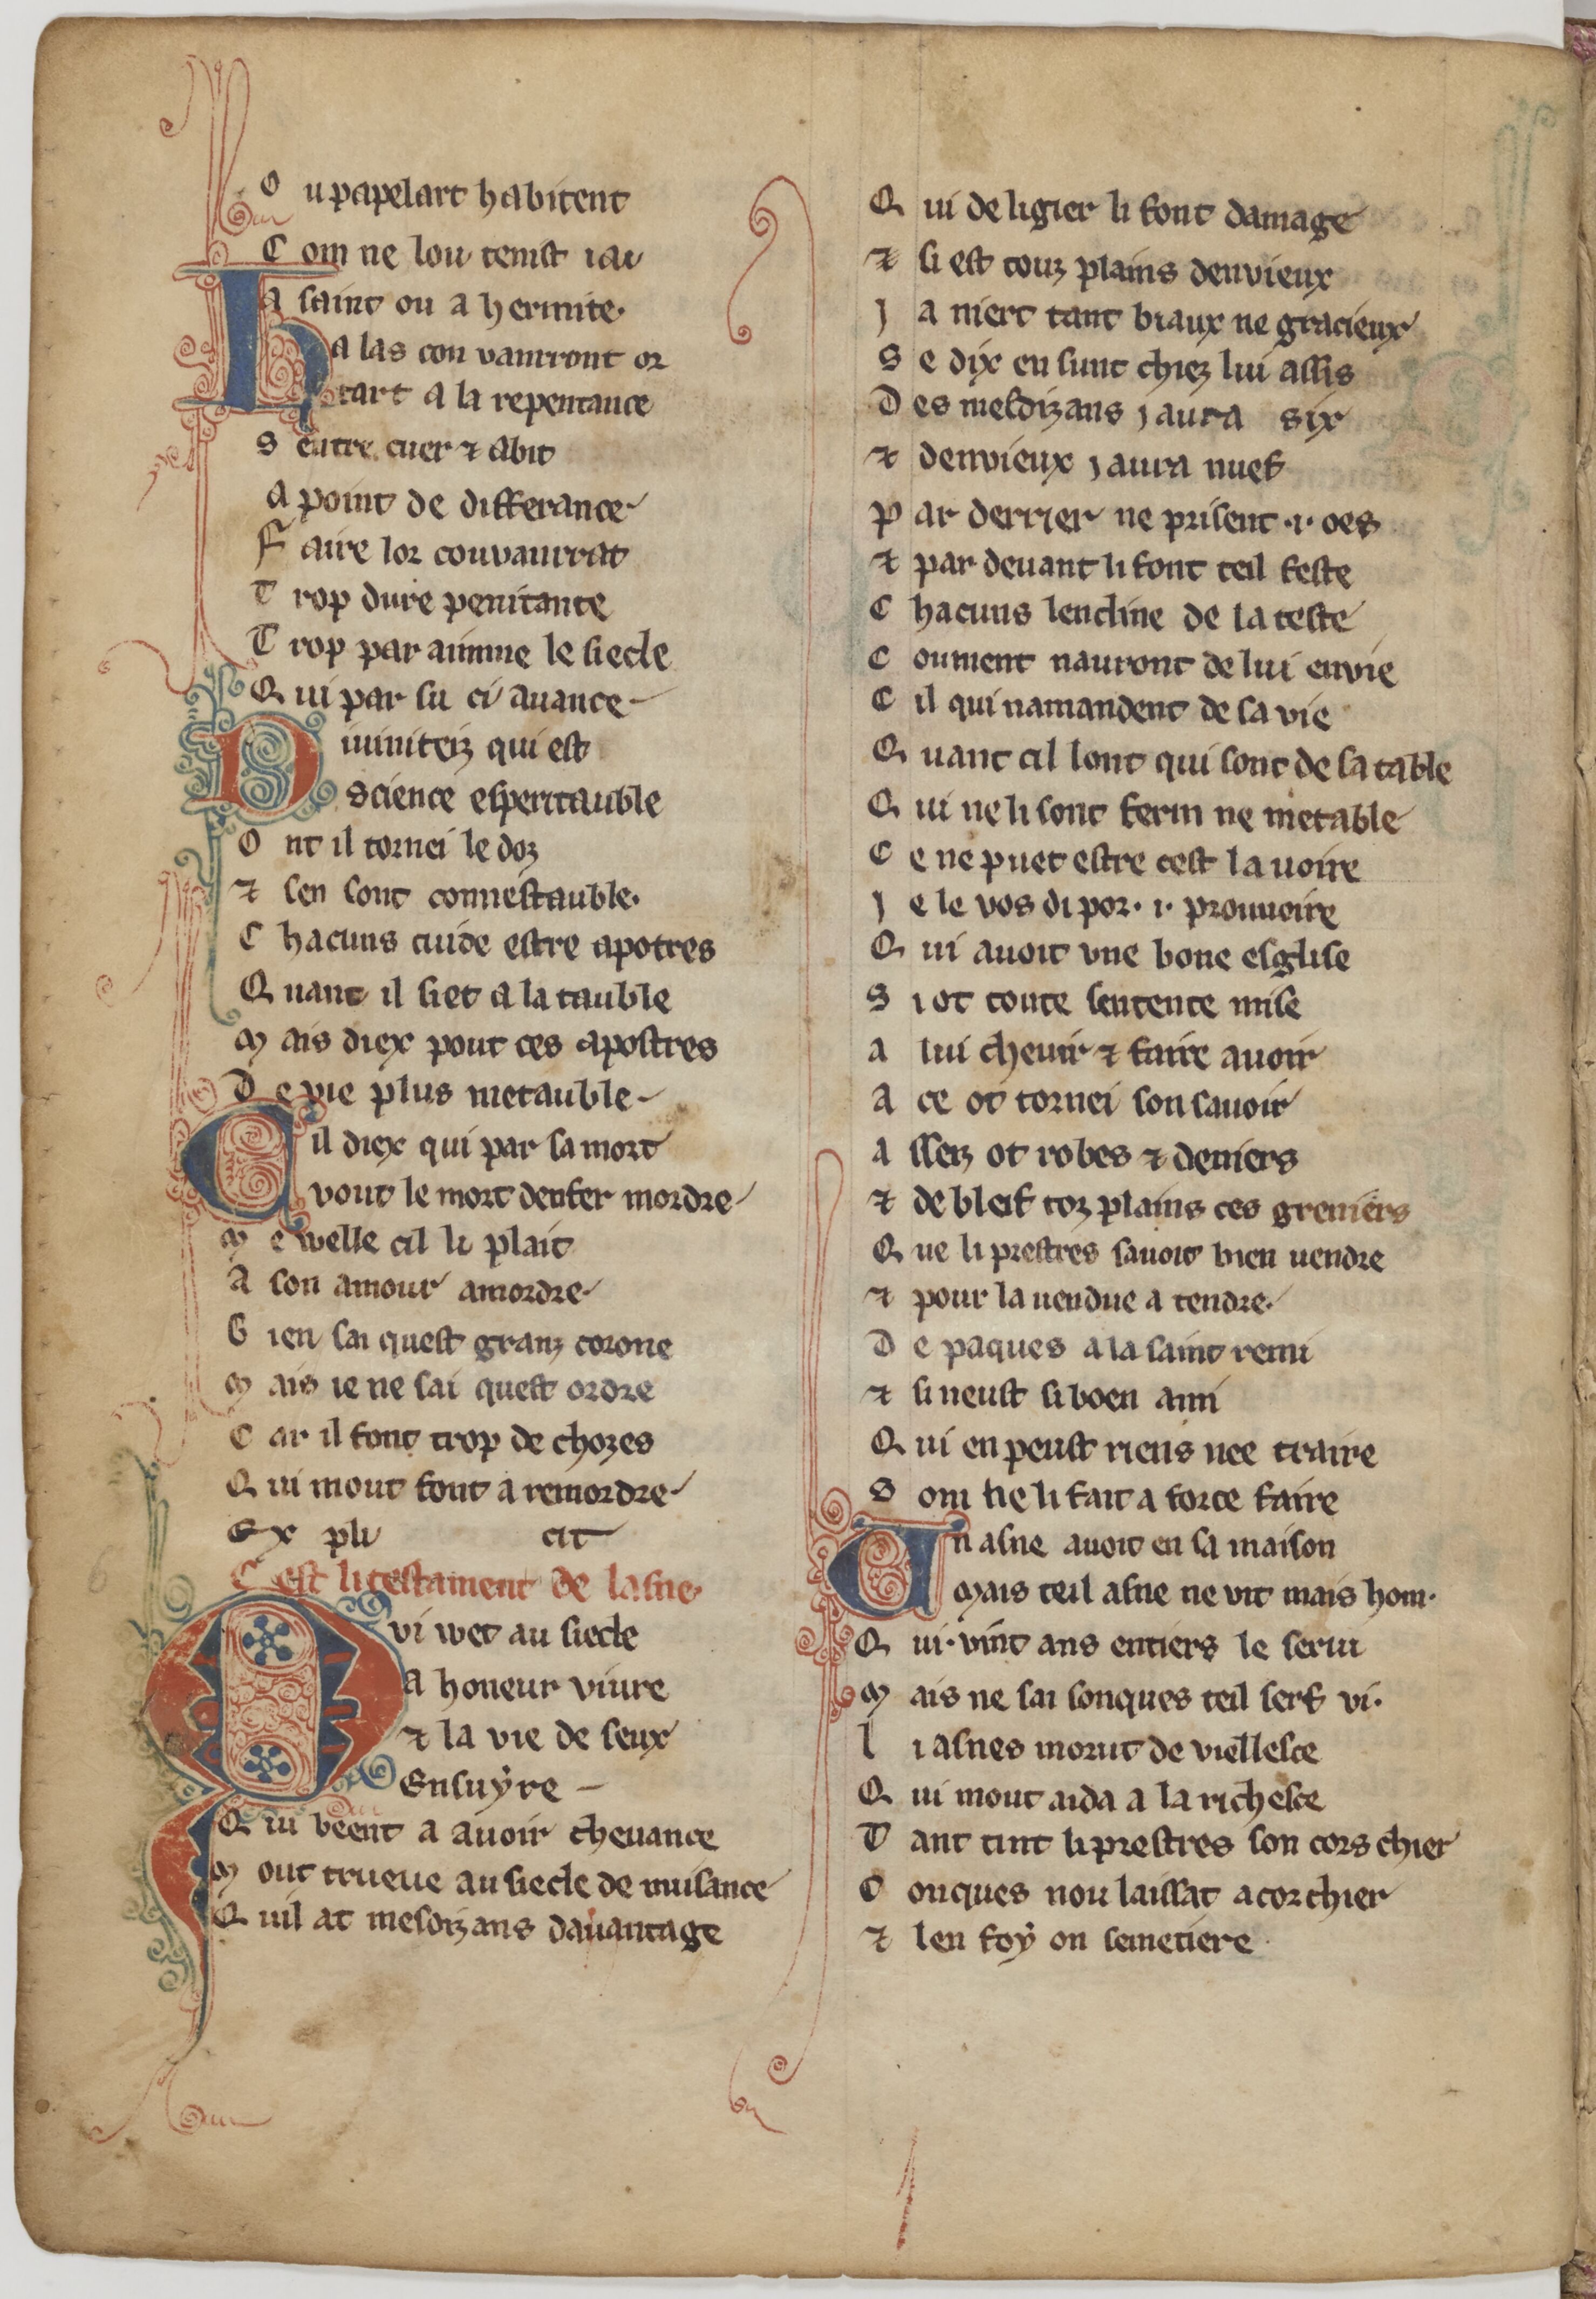 O u papelart habitent
C om ne lou tenist iai
A saint ou a hermite.
Ha las con vanrront or
tart a la repentance
S entre cuer ⁊ abit
A point de differance
F aire lor couvanrrat
T rop dure penitance
T rop par aimme le siecle
Q ui par su ci auance
Diuiniteiz qui est
science esperitauble
O nt il tornei le doz
⁊ sen font connestauble.
C hacuns cuide estre apotres
Q uant il siet a la tauble
M ais diex pout ces apostres
D e vie plus metauble
Cil diex qui par sa mort
vout le mort denfer mordre
M e welle cil li plait
A son amour amordre
B ien sai quest granz corone
M ais ie ne sai quest ordre
C ar il font trop de chozes
Q ui mout font a remordre
Ex pli cit
C est li testament de lasne.
Qvi wet au siecle
a honeur viure
⁊ la vie de seux
Ensuÿre
Q ui beent a auoir cheuance
M out trueue au siecle de nuisance
Q uil at mesdizans dauantage
Q ui de ligier li font damage
⁊ si est touz plains denvieux
J a niert tant biaux ne gracieux
S e dix en sunt chiez lui assis
D es mesdizans j aura six
⁊ denvieux j aura nuef
P ar derrier ne prisent .i. oes
⁊ par deuant li font teil feste
C hacuns lencline de la teste
C oument nauront de lui envie
C il qui namandent de sa vie
Q uant cil lont qui sont de sa table
Q ui ne li sont ferm ne metable
C e ne puet estre cest la uoire
J e le vos di por .i. prouuoire
Q ui auoit vne bone esglise
S i ot toute sentente mise
A lui cheuir ⁊ faire auoir
A ce ot tornei son sauoir
A sseiz ot robes ⁊ deniers
⁊ de bleif toz plains ces greniers
Q ue li prestres sauoit bien uendre
⁊ pour la uendue a tendre.
D e paques a la saint remi
⁊ si neust si boen ami
Q ui en peust riens nee traire
S om ne li fait a force faire
Un asne auoit en sa maison
Mais teil asne ne vit mais hom.
Q ui .vint ans entiers le serui
M ais ne sai sonques teil serf vi.
L i asnes morut de viellesce
Q ui mout aida a la richesce
T ant tint li prestres son cors chier
C onques nou laissat acorchier
⁊ len foÿ on semetiere